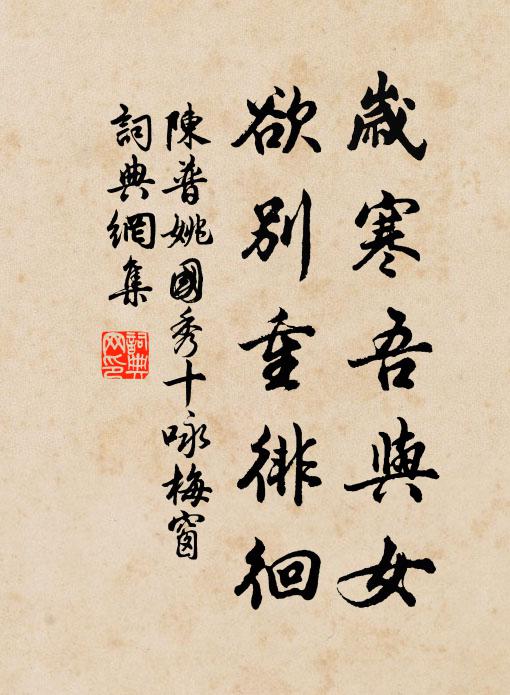 歲寒吾與女
欲別重徘徊
陳普姚國秀十咏梅窗
詞典網集
詞典網印